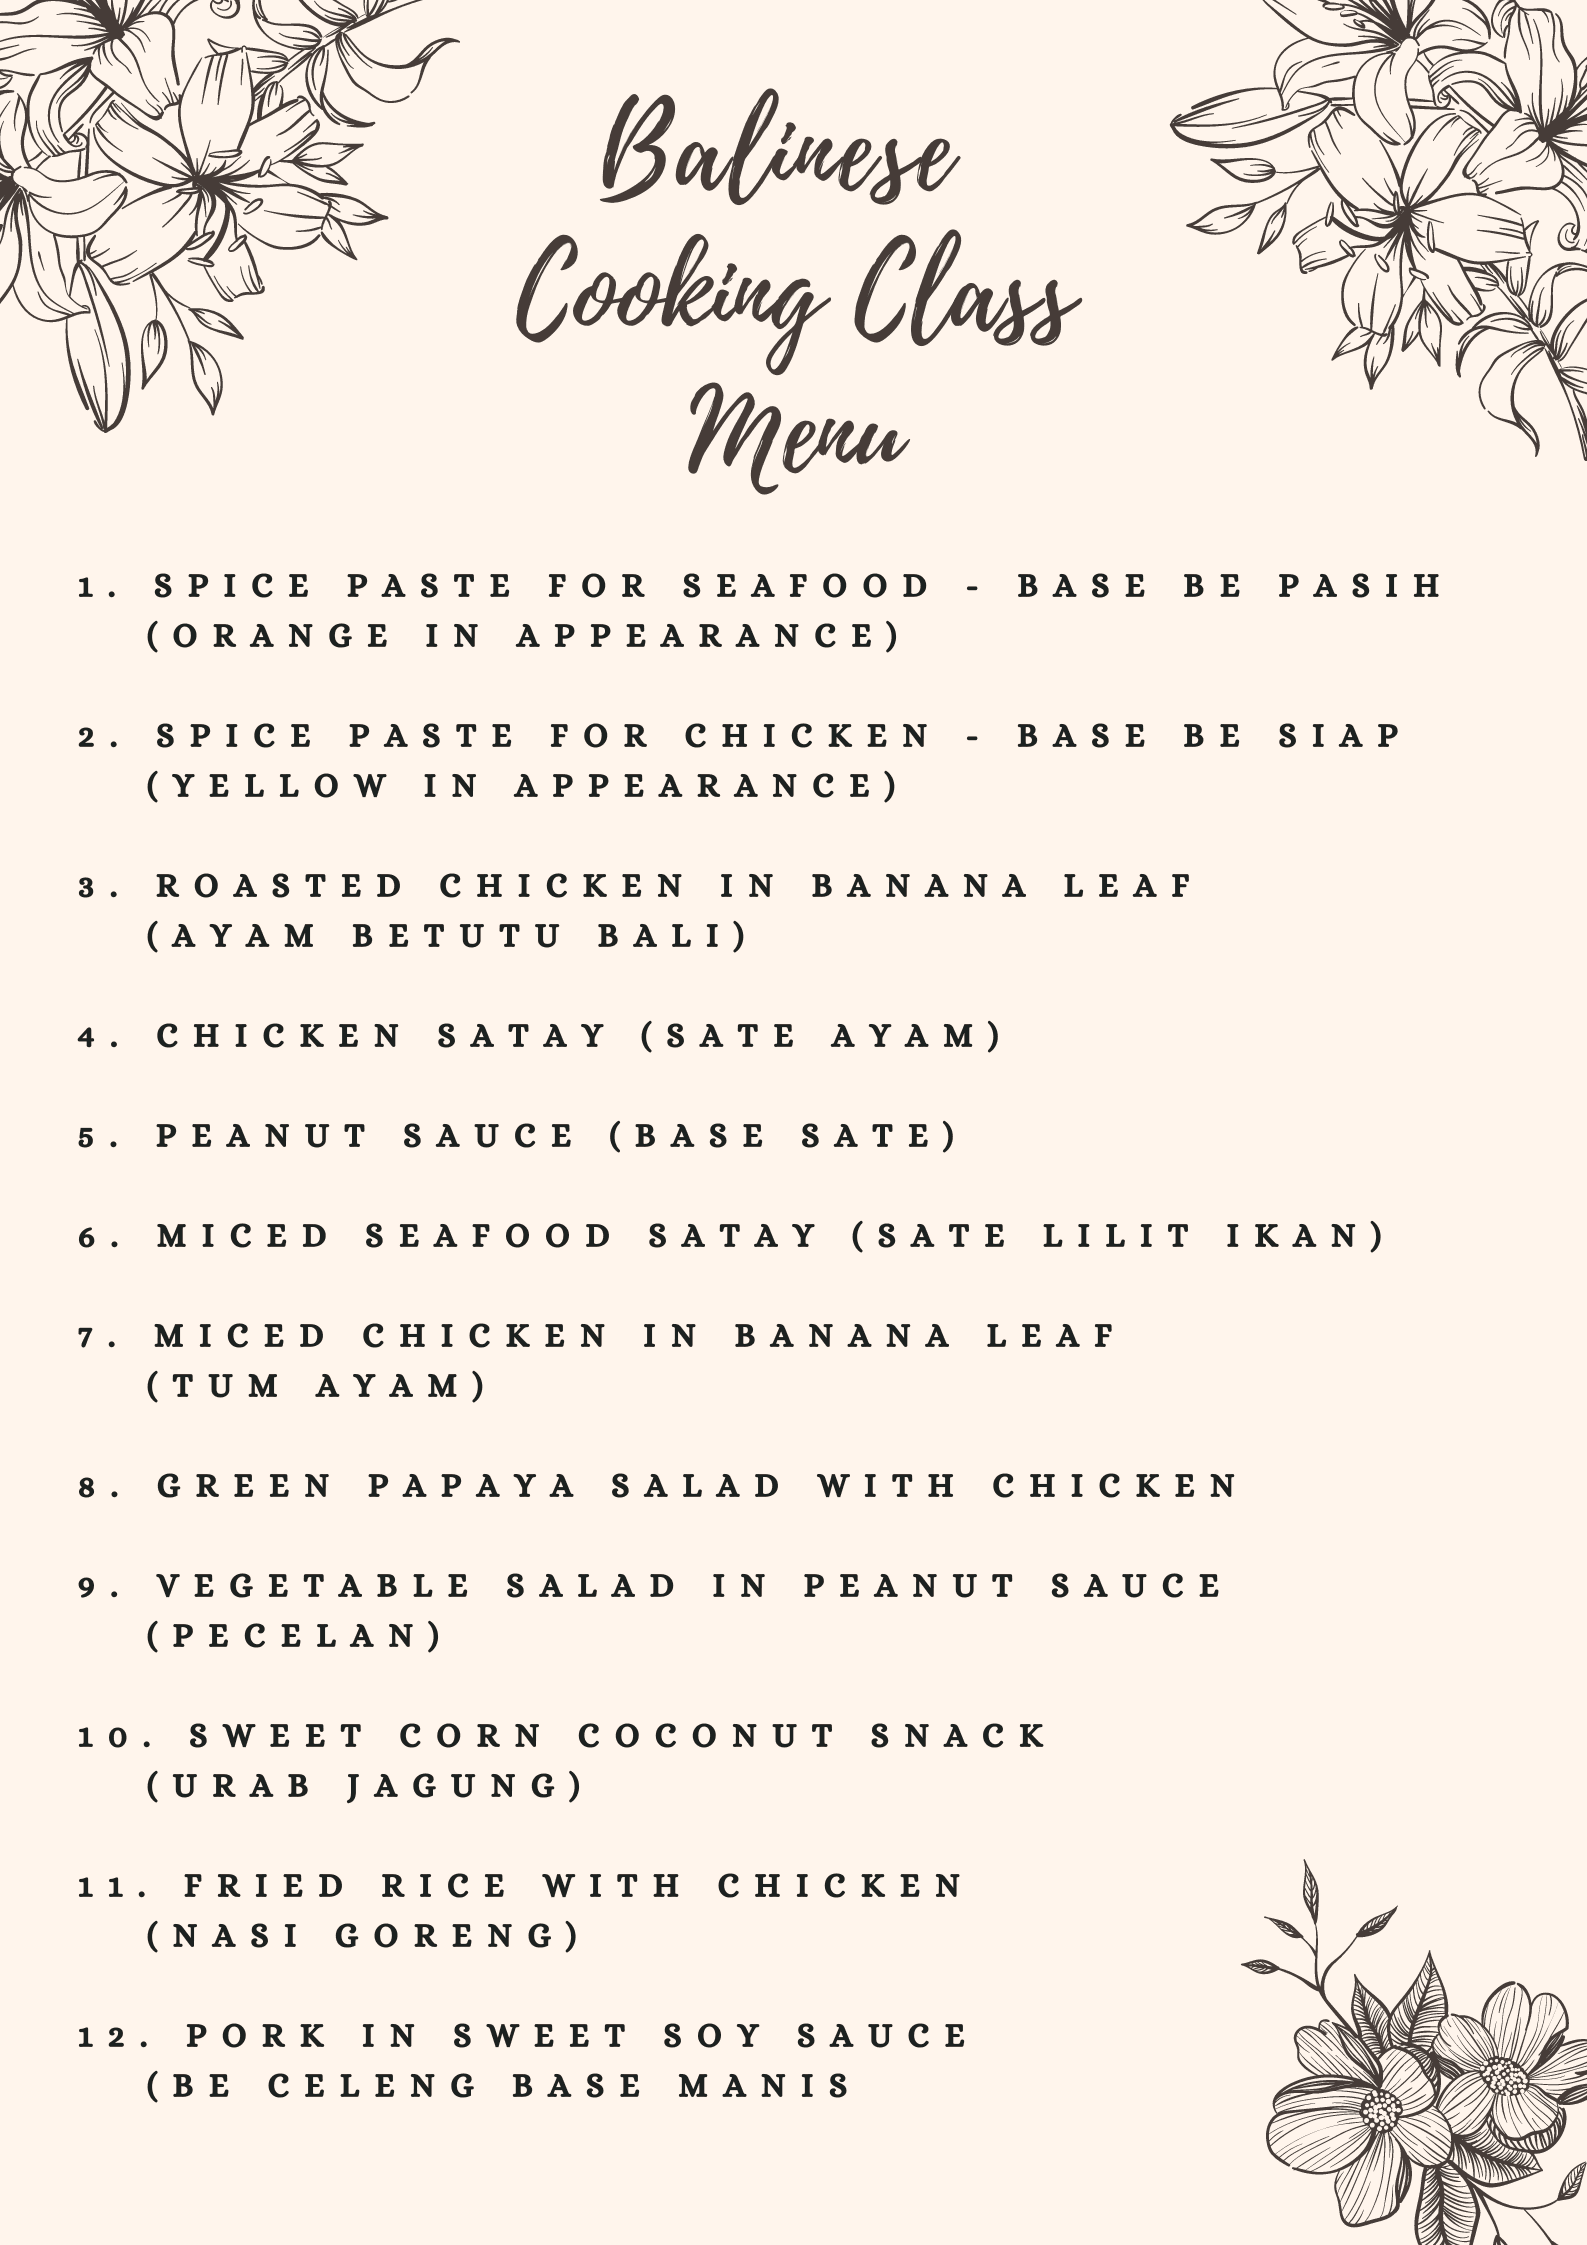 Balinese
Cooking Class
Menu
1. SPICE PASTE FOR SEAFOOD - BASE BE PASIH
(ORANGE IN APPEARANCE)
2. SPICE PASTE FOR CHICKEN - BASE BE SIAP
(YELLOW IN APPEARANCE)
3. ROASTED CHICKEN IN BANANA LEAF
(AYAM BETUTU BALI)
4. CHICKEN SATAY (SATE AYAM)
5. PEANUT SAUCE (BASE SATE)
6. MICED SEAFOOD SATAY (SATE LILIT IKAN)
7. MICED CHICKEN IN BANANA LEAF
(TUM AYAM)
8. GREEN PAPAYA SALAD WITH CHICKEN
9. VEGETABLE SALAD IN PEANUT SAUCE
(PECELAN)
10. SWEET CORN COCONUT SNACK
(URAB JAGUNG)
11. FRIED RICE WITH CHICKEN
(NASI GORENG)
12. PORK IN SWEET SOY SAUCE
(BE CELENG BASE MANIS